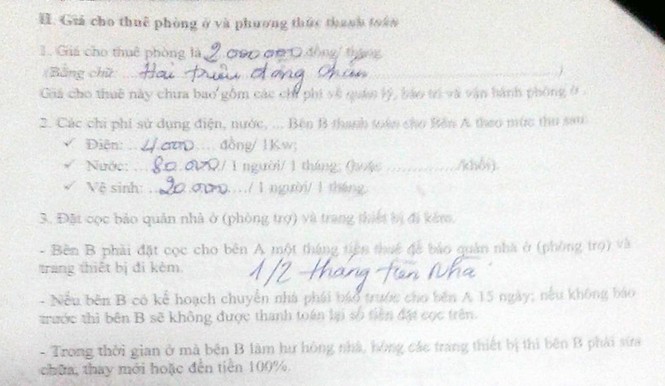 II. Giá cho thuê phòng ở và phương thức thanh toán
1. Giá cho thuê phòng là 2.000.000 đồng/ tháng
(Bằng chữ: ... Hai triệu đồng chẵn ...)
Giá cho thuê này chưa bao gồm các chi phí về quản lý, bảo trì và vận hành phòng ở .
2. Các chi phí sử dụng điện, nước, ... Bên B thanh toán cho Bên A theo mức thu sau:
✓ Điện: ..4000..... đồng/ 1Kw;
✓ Nước: ...80.000/ 1 người/ 1 tháng; (hoặc ................/khối).
✓ Vệ sinh: ...20.000..../ 1 người/ 1 tháng.
3. Đặt cọc bảo quản nhà ở (phòng trợ) và trang thiết bị đi kèm.
- Bên B phải đặt cọc cho bên A một tháng tiền thuê để bảo quản nhà ở (phòng trọ) và
trang thiết bị đi kèm. 1/2 tháng tiền nhà
- Nếu bên B có kế hoạch chuyển nhà phải báo trước cho bên A 15 ngày; nếu không báo
trước thì bên B sẽ không được thanh toán lại số tiền đặt cọc trên.
- Trong thời gian ở mà bên B làm hư hỏng nhà, hỏng các trang thiết bị thì bên B phải sửa
chữa, thay mới hoặc đền tiền 100%.